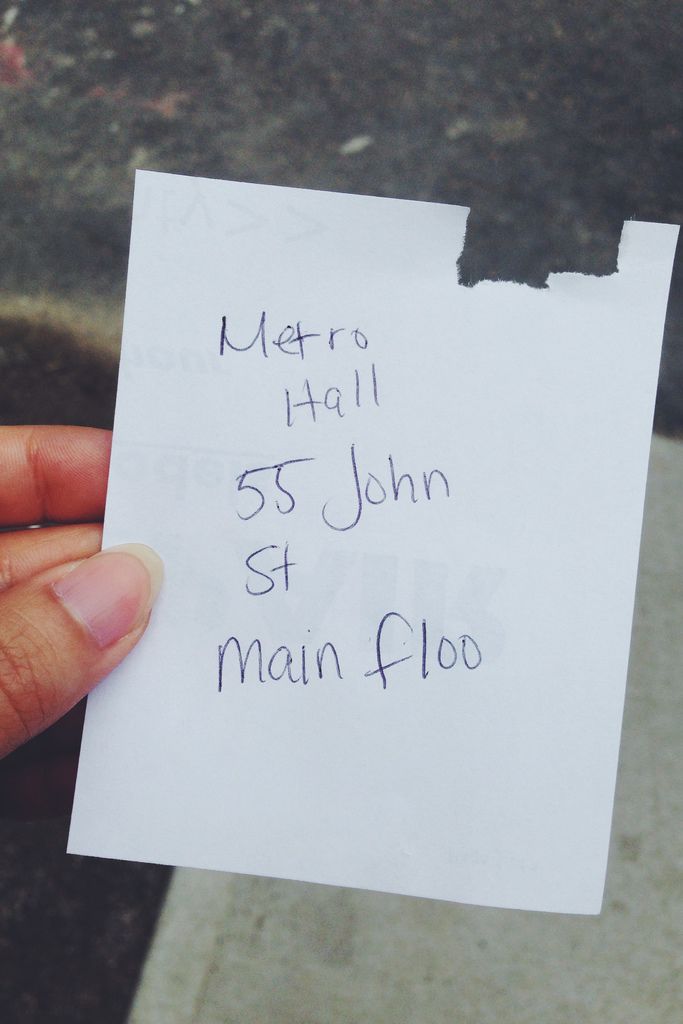 Metro
Hall
55 John
St
main floo